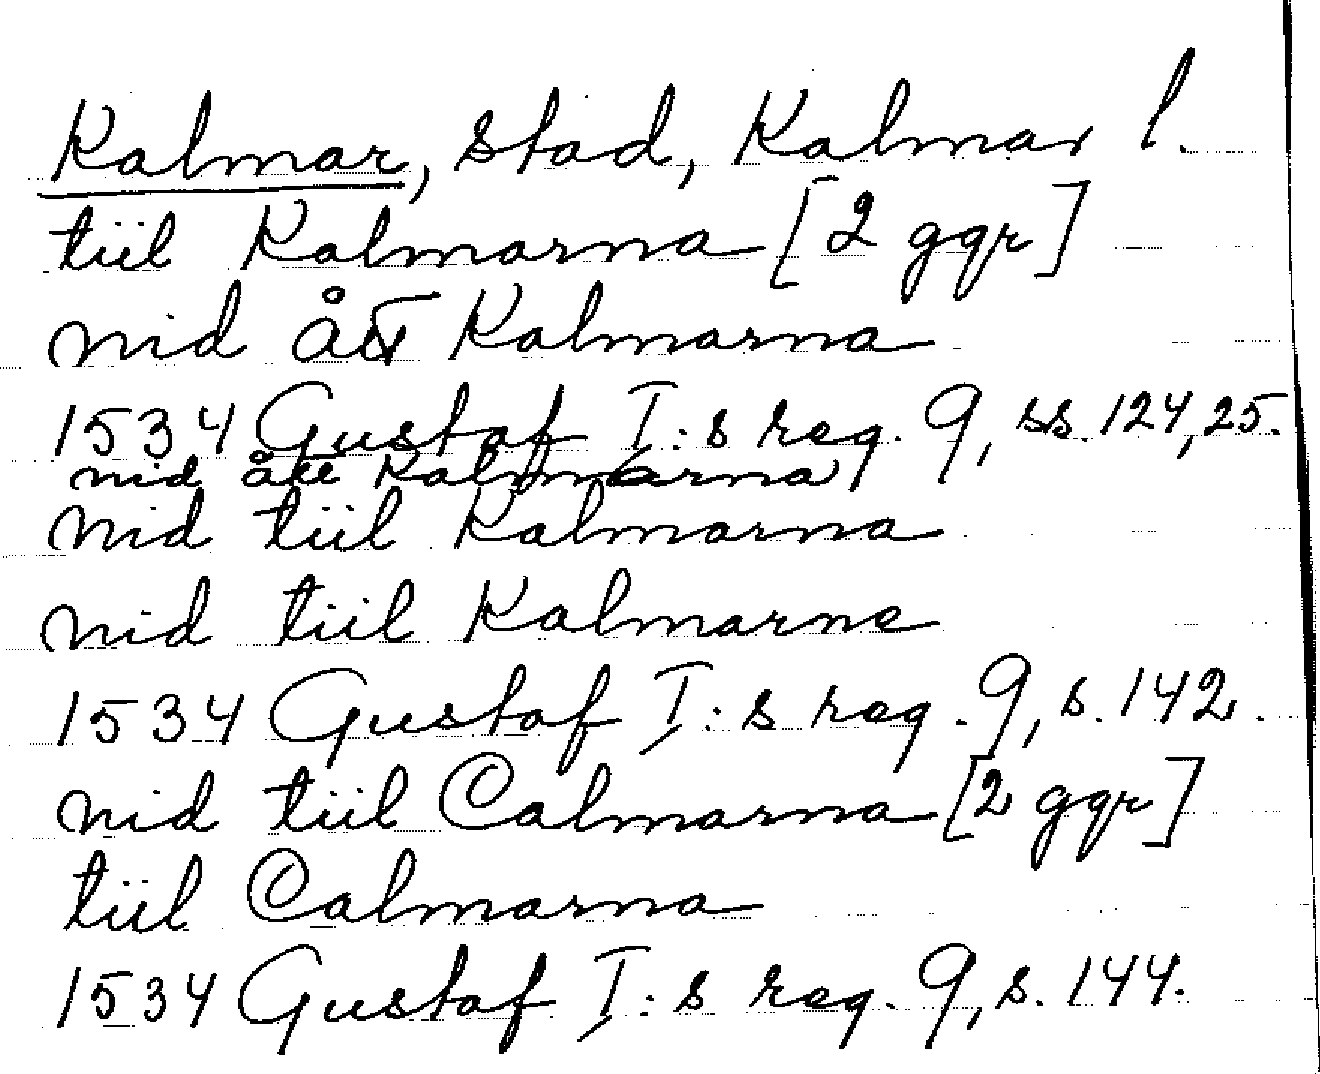 Kalmar, stad, Kalmar l.
tiil Kalmarna [2 ggr]
nid ått Kalmarna
1534 Gustaf I:s reg. 9, ss. 124, 25.
nid ått Kalmarna
nid tiil Kalmarna
nid tiil Kalmarne
1534 Gustaf I:s reg. 9, s. 142.
nid tiil Calmarna [2 ggr]
tiil Calmarna
1534 Gustaf I:s reg. 9, s. 144.